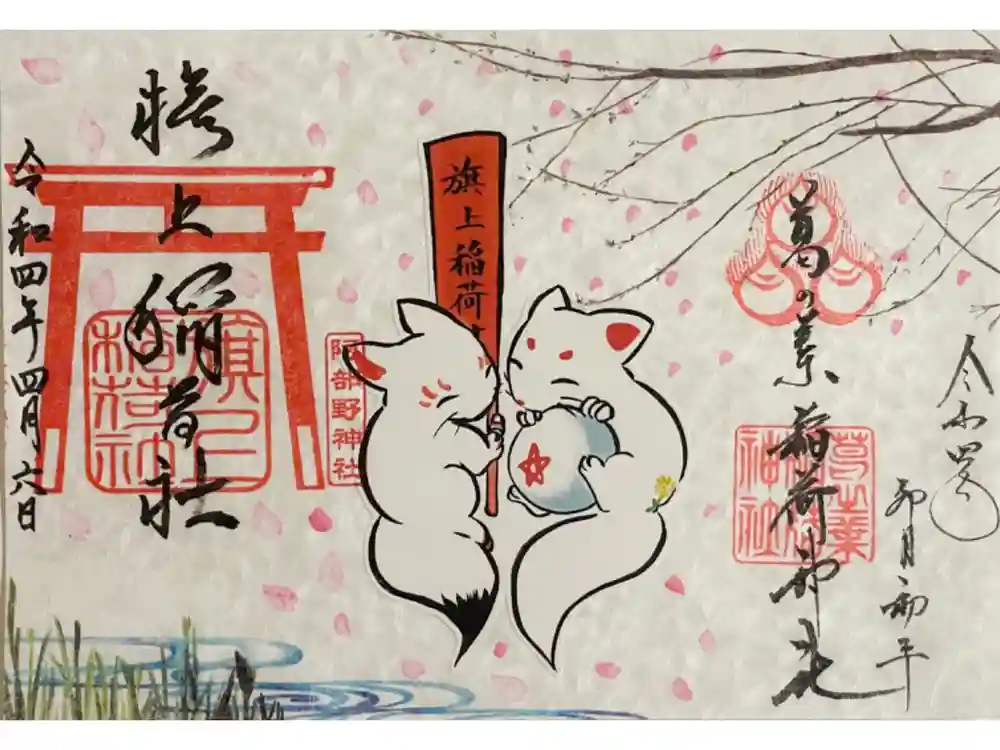 令和四年
卯月初午
葛の葉稲荷神社
旗上稲荷
阿部野神社
旗上稲荷社
旗上
稲荷社
令和四年四月六日